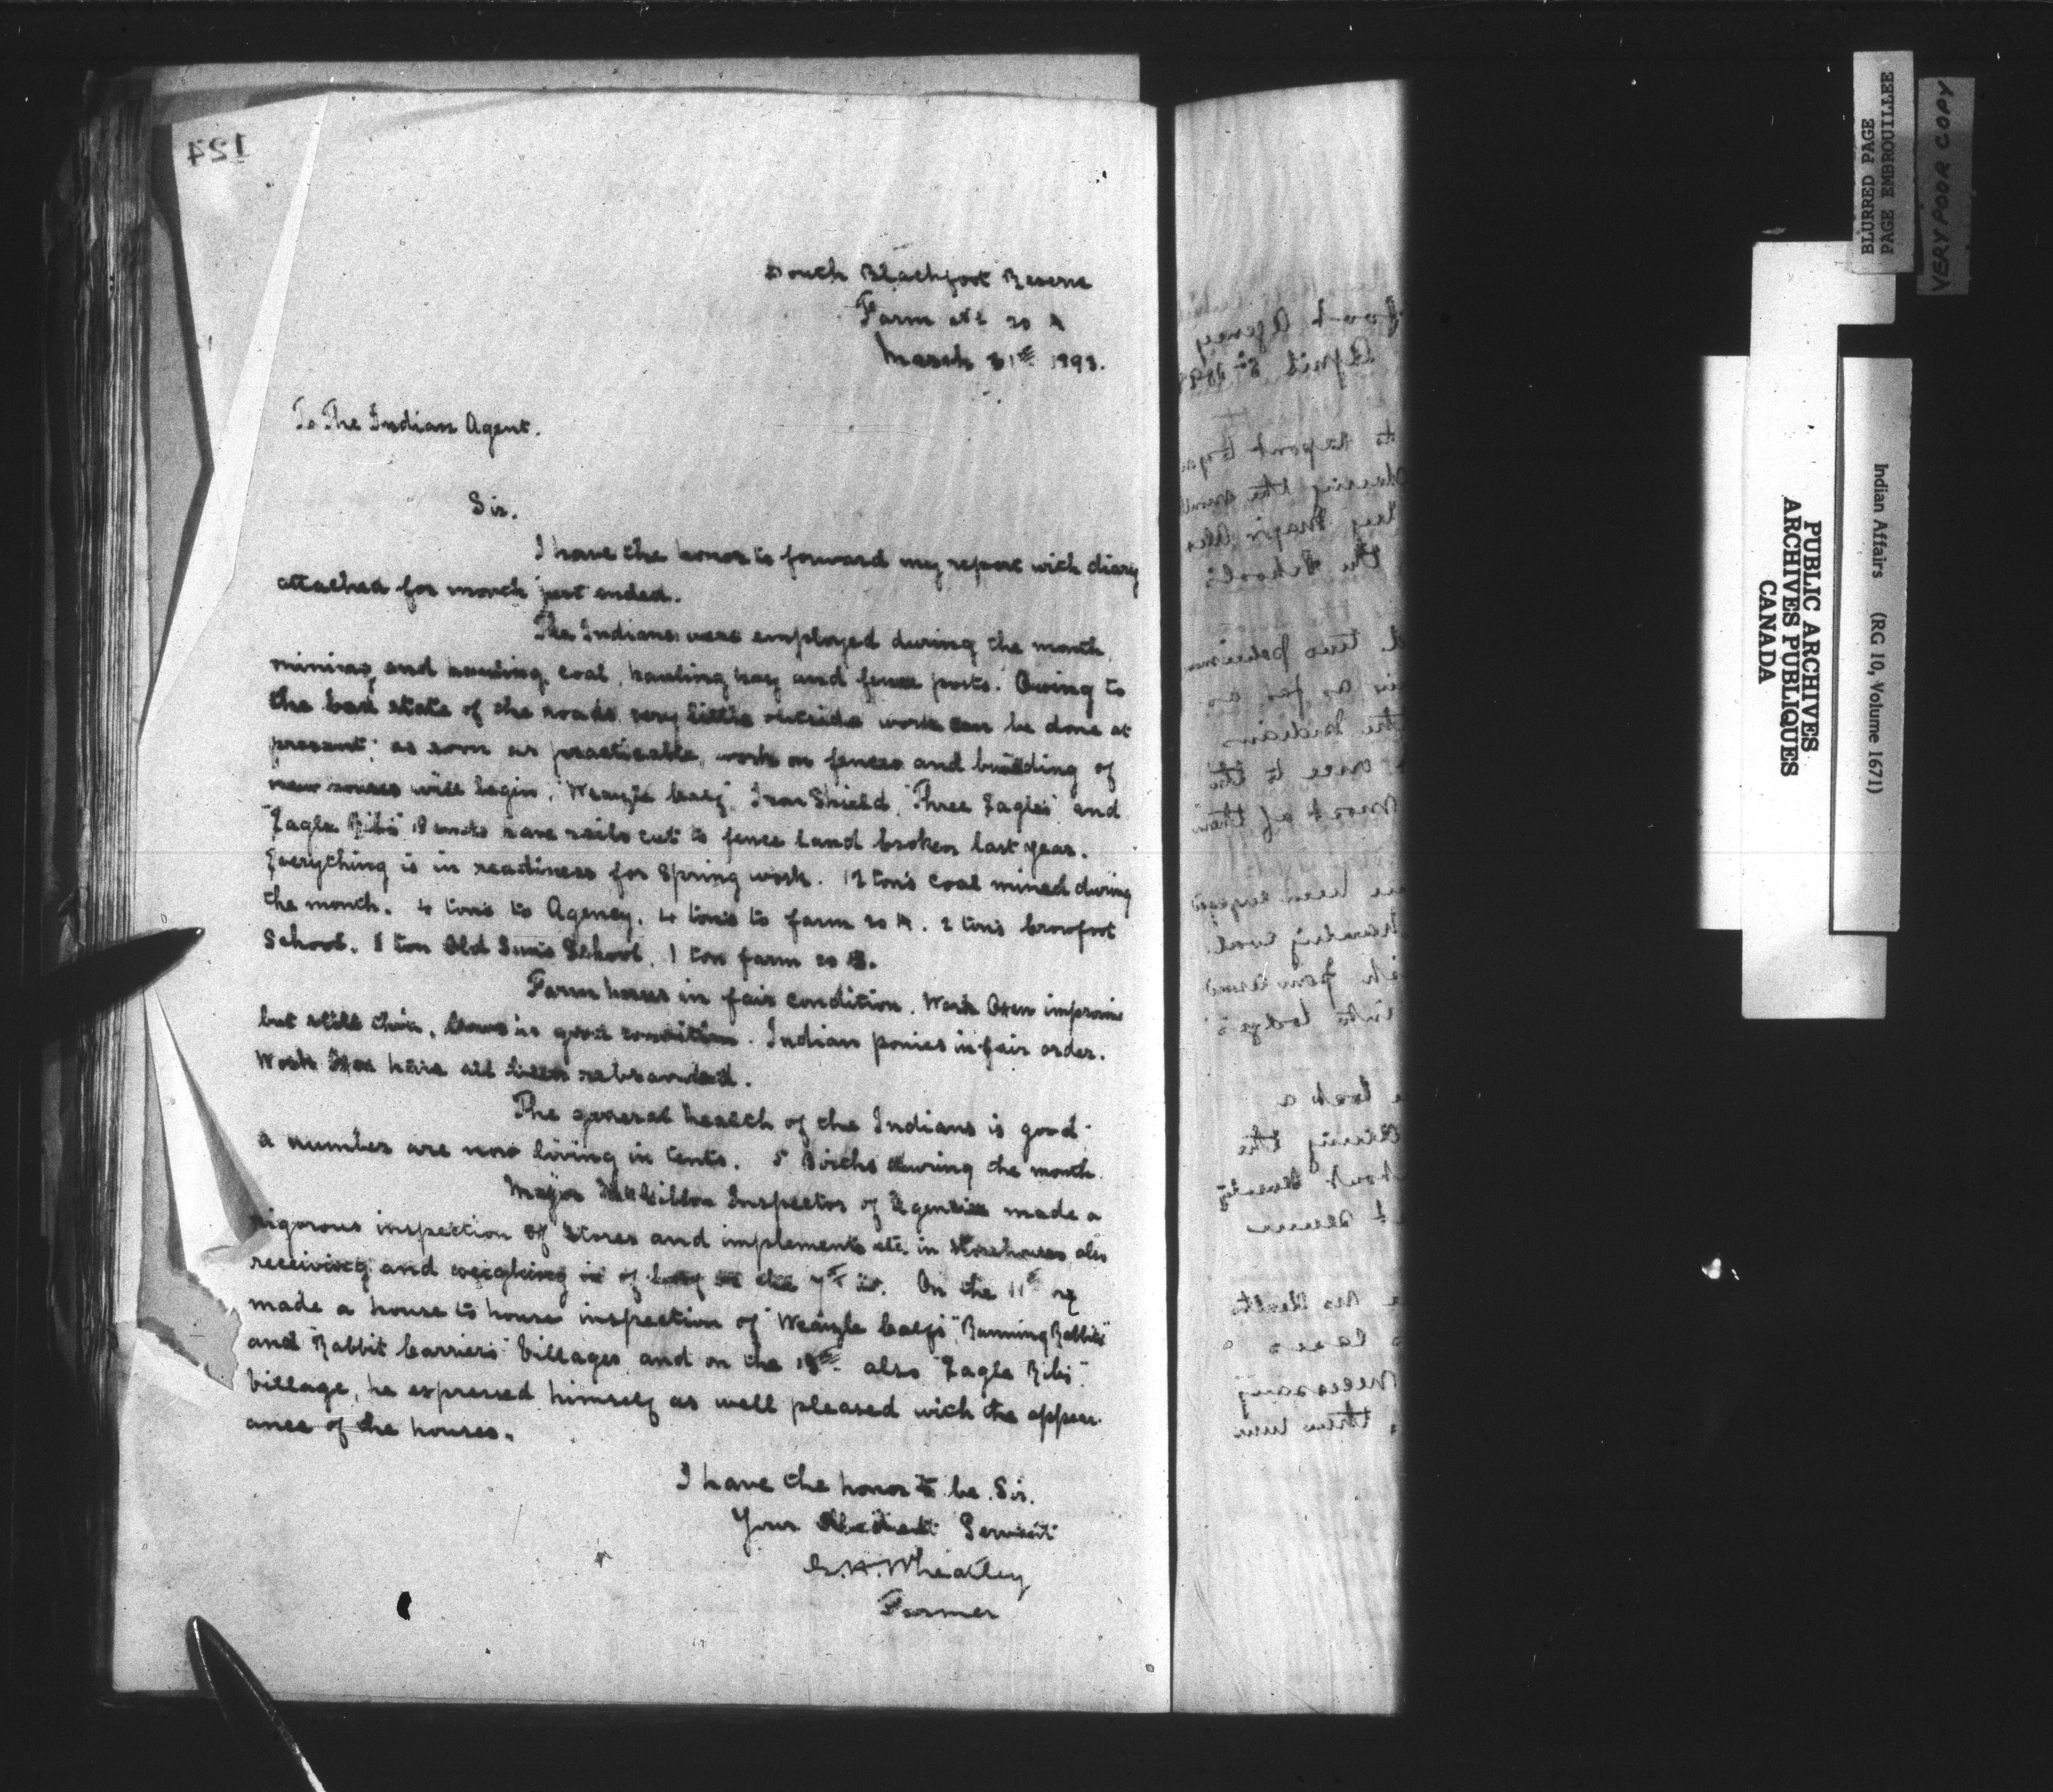 124
South Blackfoot Reserve
Farm No 20 A
March 31st 1893.
To The Indian Agent.
Sir.
I have the honor to forward my report with diary
attached for month just ended.
The Indians were employed during the month
mining and hauling coal, hauling hay and fence posts. Owing to
the bad state of the roads very little outside work can be done at
present; as soon as practicable, work on fences and building of
new houses will begin. "Weazle Calf", Iron Shield, "Three Eagles" and
"Eagle Ribs" have rails cut to fence land broken last year.
Everything is in readiness for Spring work. 12 tons coal mined during
the month. 4 tons to Agency. 4 tons to farm 20 A. 2 tons Crowfoot
School. 1 ton Old Suns School. 1 ton farm 20 B.
Farm horses in fair condition. Work Oxen improvin
but still thin. Cows in good condition. Indian ponies in fair order.
Work Oxen have all been rebranded.
The general health of the Indians is good
a number are now living in tents. 5 Births during the month.
Major McGibbon Inspector of Agencies made a
rigorous inspection of Stores and implements etc. in storehouses also
receiving and weighing in of the 7th. On the 11th
made a house to house inspection of "Weazle Calf's", "Running Rabbits"
and "Rabbit Carriers" Villages and on the 13th also "Eagle Ribs"
Village, he expressed himself as well pleased with the appear-
ance of the houses.
I have the honor to be. Sir.
Your Obedient Servant
G.H. Wheatley
Farmer
foot Agency
April 5th 189
to report
during the
Major
the Schools
two
as far as
the Indians
once to the
most of them
been
hauling coal.
into lodges
took a
during the
about twenty
necessary
BLURRED PAGE
PAGE EMBROUILLEE
VERY POOR COPY
PUBLIC ARCHIVES
ARCHIVES PUBLIQUES
CANADA
Indian Affairs (RG 10, Volume 1671)